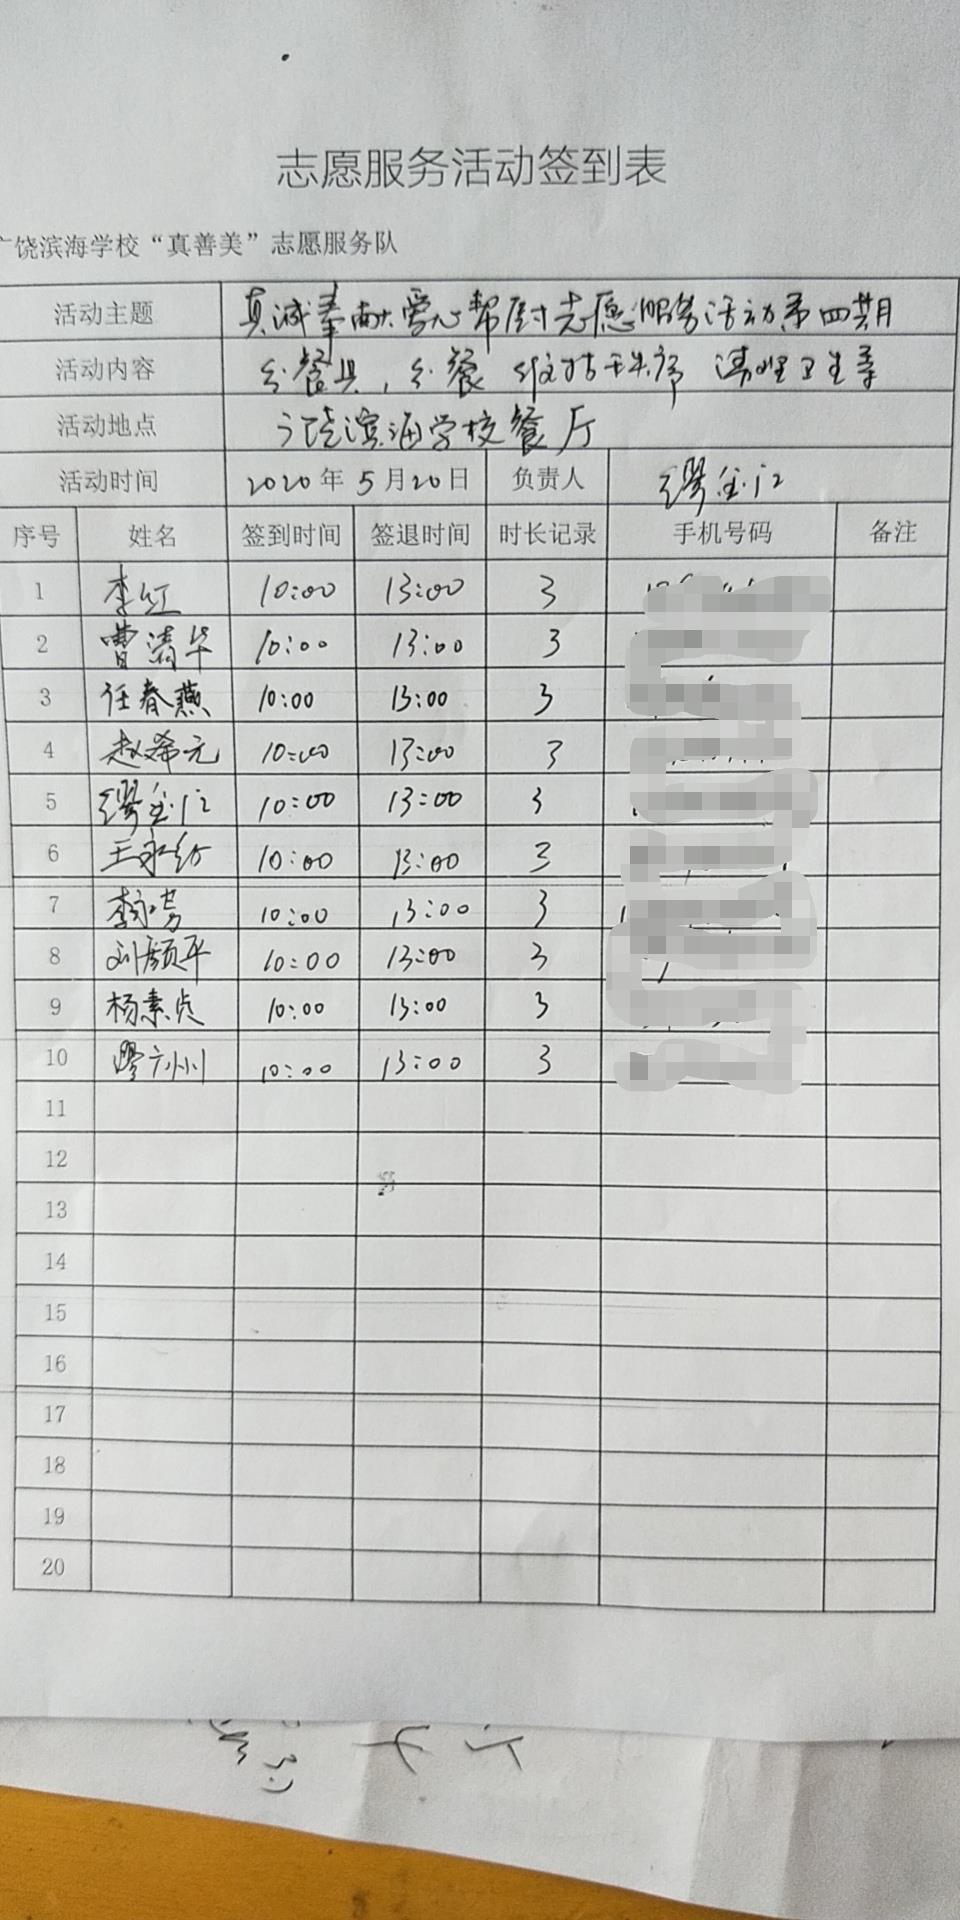 志愿服务活动签到表
广饶滨海学校“真善美”志愿服务队
活动主题 真诚奉献爱心帮厨志愿服务活动第四期
活动内容 分餐具，分餐 维持秩序 清理卫生等
活动地点 广饶滨海学校餐厅
活动时间 2020年5月20日 负责人 缪金江
序号 姓名 签到时间 签退时间 时长记录 手机号码 备注
1 李红 10:00 13:00 3
2 曹清华 10:00 13:00 3
3 任春燕 10:00 13:00 3
4 赵希元 10:00 13:00 3
5 缪金江 10:00 13:00 3
6 王永 10:00 13:00 3
7 李 10:00 13:00 3
8 刘颜平 10:00 13:00 3
9 杨素贞 10:00 13:00 3
10 10:00 13:00 3
11
12
13
14
15
16
17
18
19
20